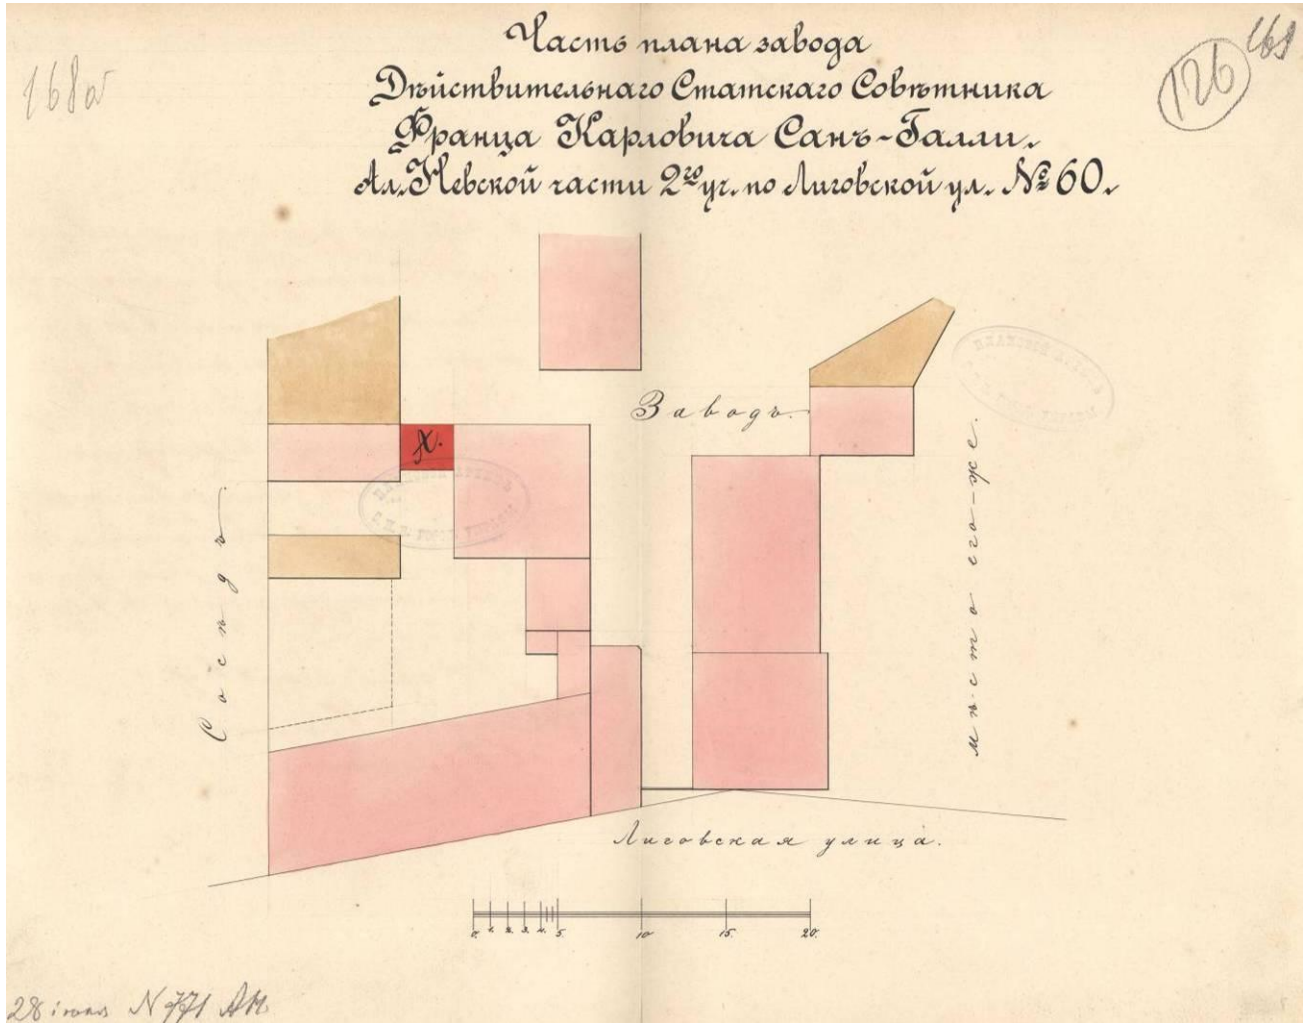 168об
126
169
Часть плана завода
Дѣйствительнаго Статскаго Совѣтника
Франца Карловича Санъ-Галли.
Ал. Невской части 2го уч. по Лиговской ул. № 60.
Заводъ.
А.
Сосѣдъ.
мѣсто его-же.
Лиговская улица.
0. 1. 2. 3. 4. 5. 10 15. 20.
28 іюня N 771 АН